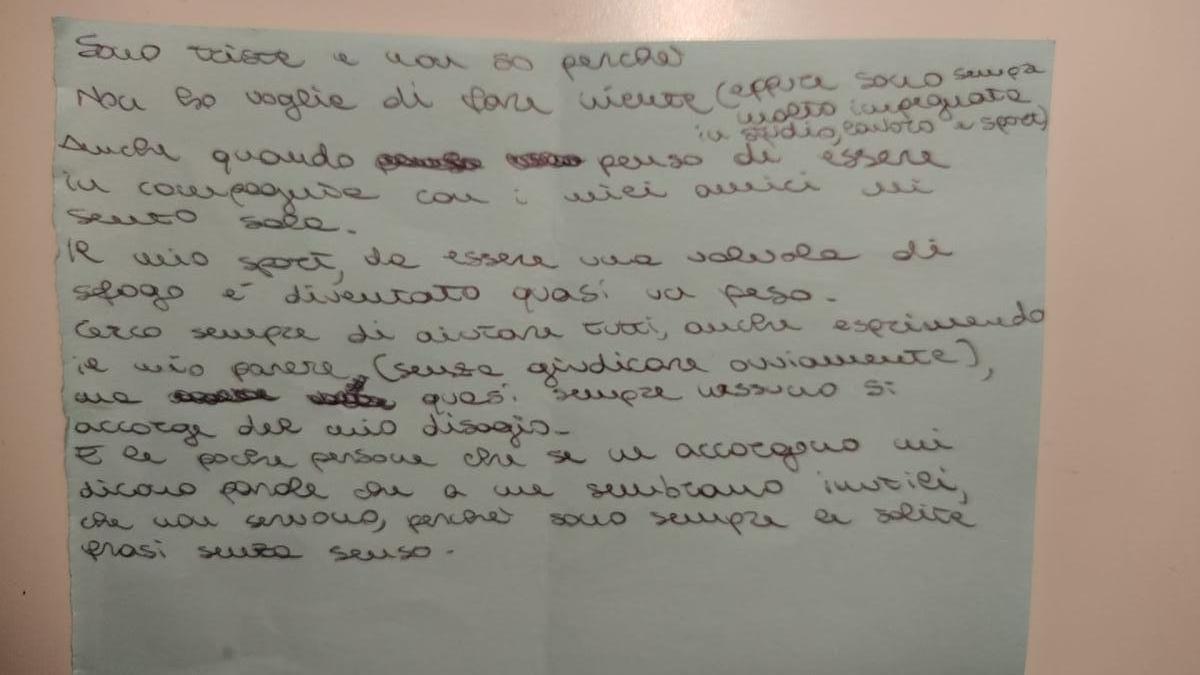 Sono triste e non so perchè
Non ho voglia di fare niente (eppure sono sempre
molto impegnata
in studio, lavoro e sport)
Anche quando penso di essere
in compagnia con i miei amici mi
sento sola.
Il mio sport, da essere una valvola di
sfogo è diventato quasi un peso.
Cerco sempre di aiutare tutti, anche esprimendo
il mio parere (senza giudicare ovviamente),
ma quasi sempre nessuno si
accorge del mio disagio.
E le poche persone che se ne accorgono mi
dicono parole che a me sembrano inutili,
che non servono, perchè sono sempre le solite
frasi senza senso.